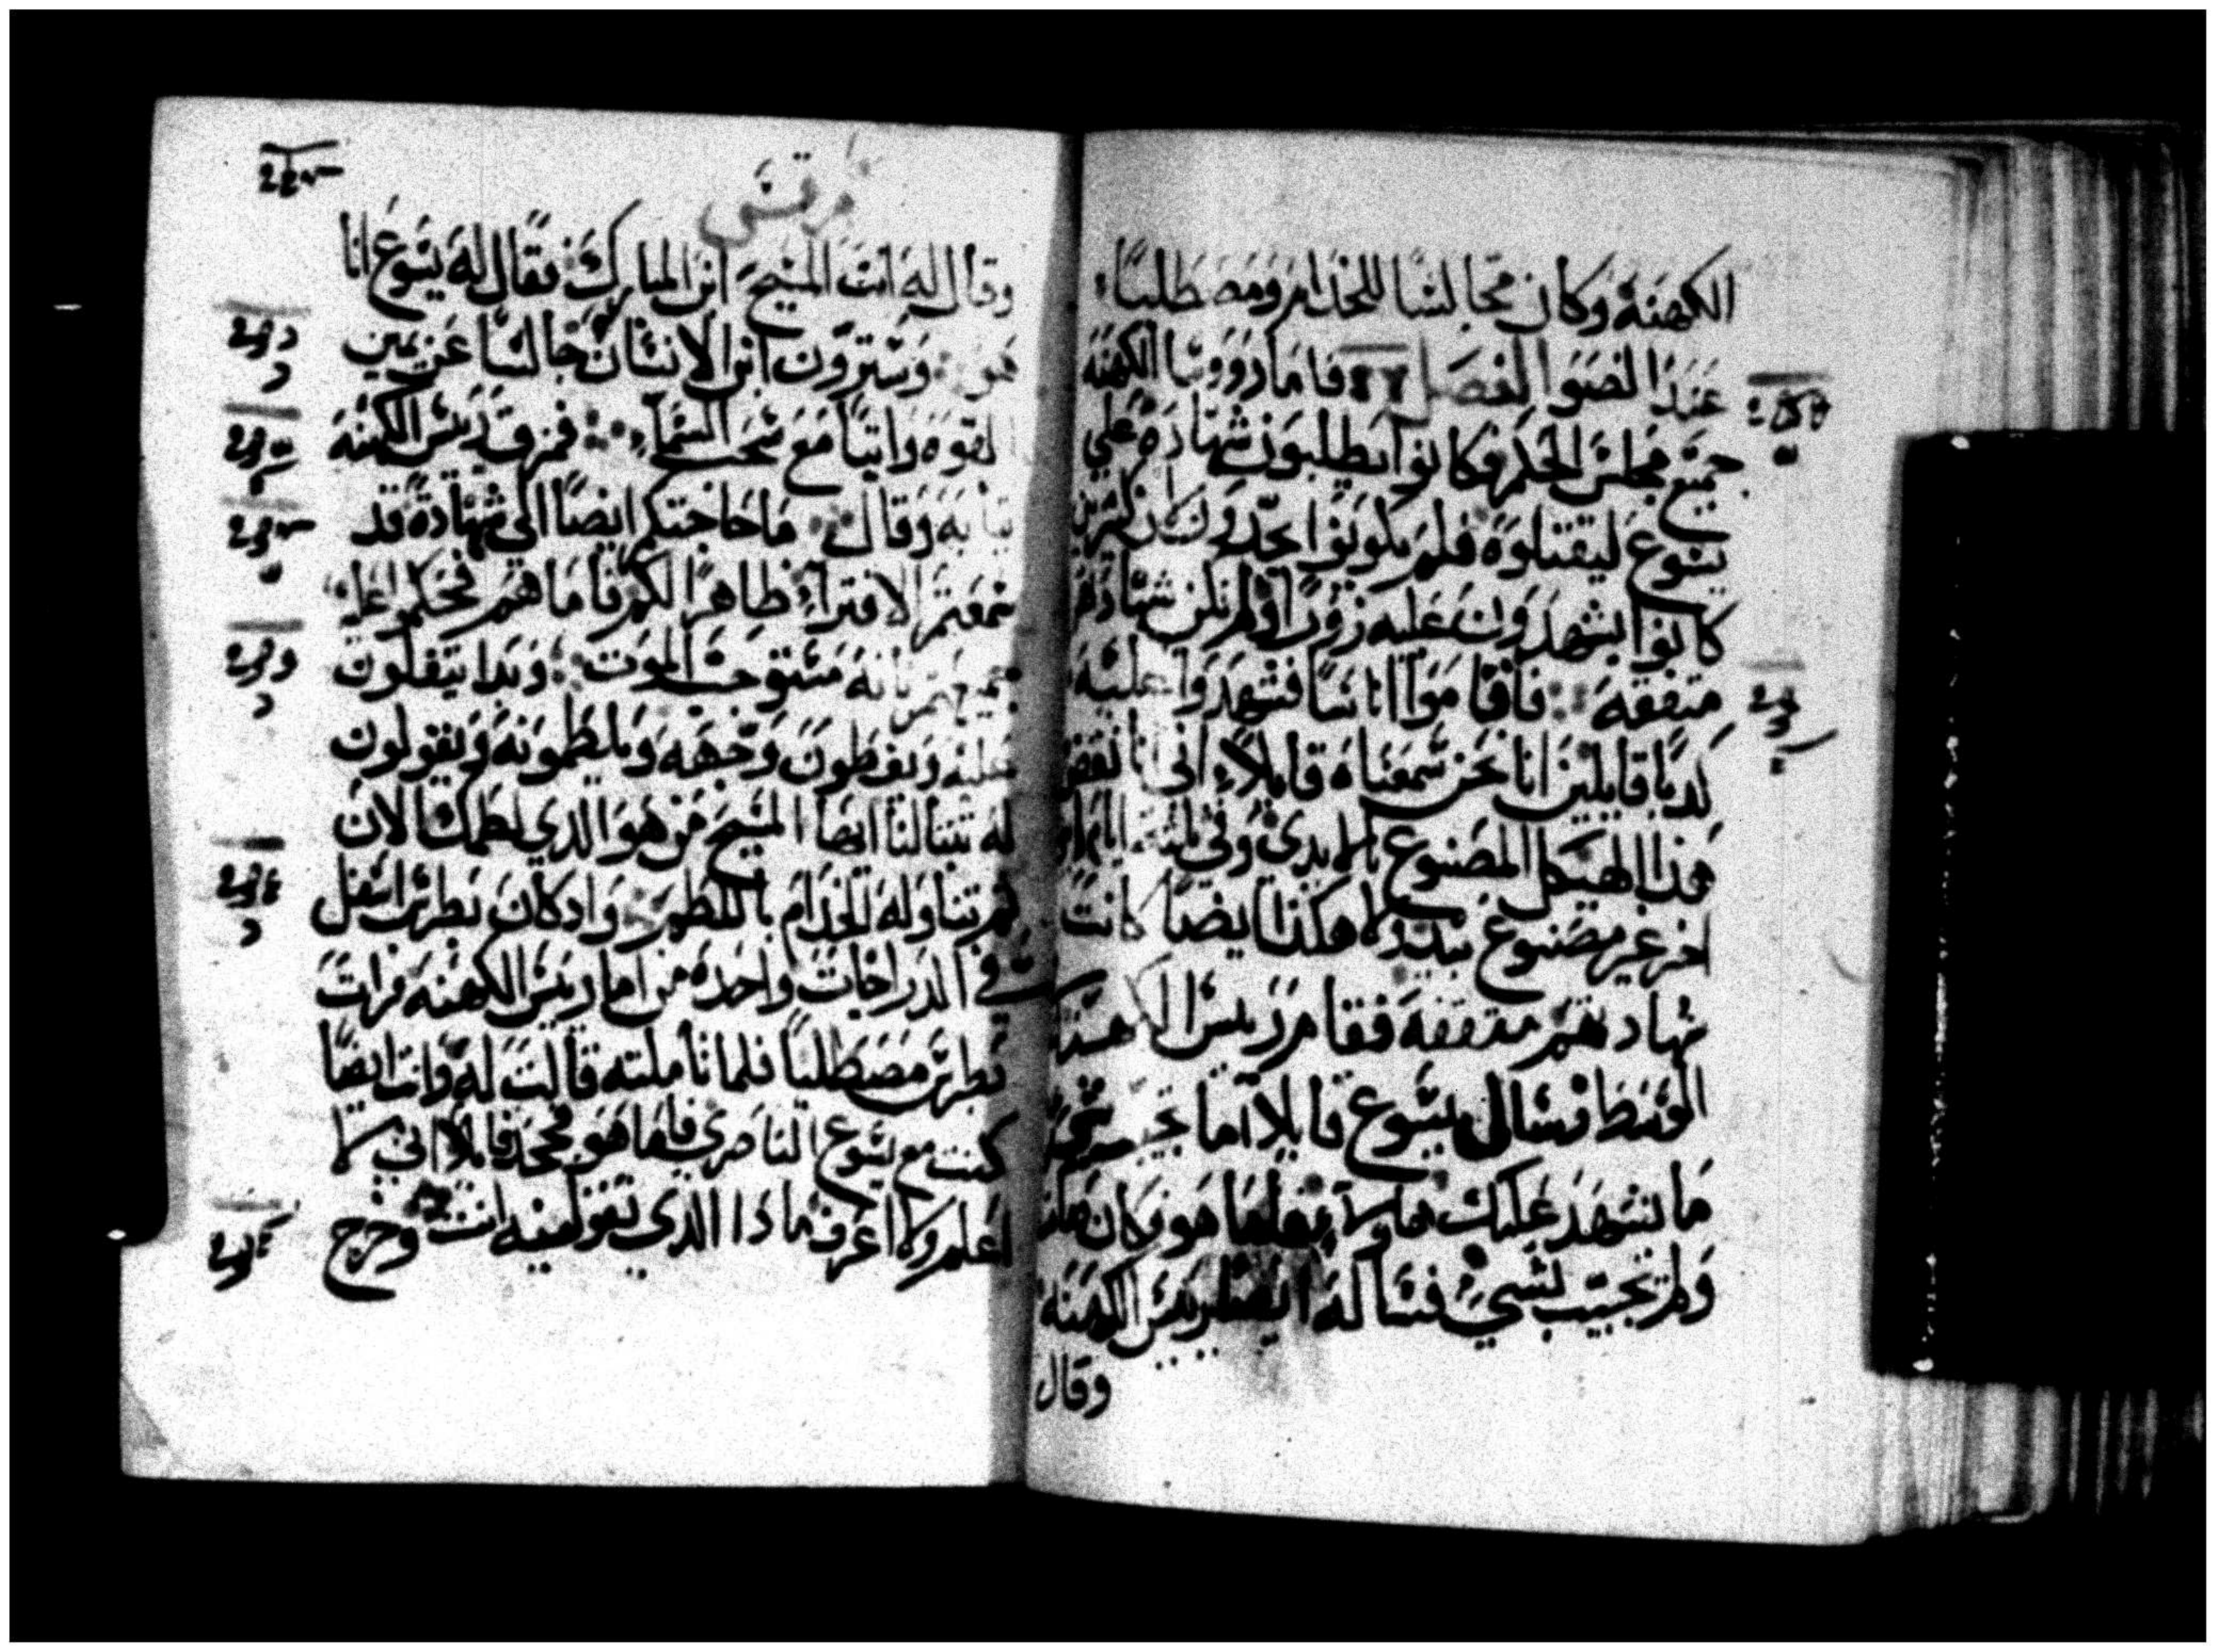 الكهنة وكان مجالسًا للخدام ومصطليًا
عند الضوا الفصل فاما رووسا الكهنة
جميع مجلس الحكم وكانوا يطلبون شهادة علي
يسوع ليقتلوه فلم يكونوا يجدون لان كثيرين
كانوا يشهدون عليه زورًا ولم تكن شهادتهم
متفقه فاقاموا اناسًا فشهدوا عليه
كدبًا قايلين انا نحن سمعناه قايلاً اني انا نقض
هذا الهيكل المصنوع بالايدي وفي ثلثة ايام
اخر غير مصنوع بيد ولا هكذا ايضًا كانت
شهادتهم متفقه فقام رييس الكهنة
الوسط وسال يسوع قايلاً اما تجيب
ما يشهد عليك هاولا فاما هو فكان
ولم تجيب لشي فساله ايضا رييس الكهنه
وقال
مرقس
وقال له انت المسيح ابن المبارك فقال له يسوع انا
هو وسترون ابن الانسان جالسًا عن يمين
القوه واتيًا مع سحب السماء فمزق رييس الكهنه
ثيابه وقال ما حاجتكم ايضًا الي شهادة قد
سمعتم الافتراء ظاهرًا لكم فاما هم فحكموا عليه
جميعهم بانه مستوجب الموت وبدا يتفلون
عليه ويغطون وجهه ويلطمونه ويقولون
له تنبا لنا ايها المسيح من هو الدي لطمك الان
ثم تناوله الخدام باللطم واد كان بطرس اسفل
في الدار اجات واحده من اما رييس الكهنه فرات
بطرس مصطليًا فلما تاملته قالت له وانت ايضًا
كنت مع يسوع الناصري فاما هو فجحد قايلاً اني لا
اعلم ولا اعرف ماذا الدي تقوليه انت وخرج